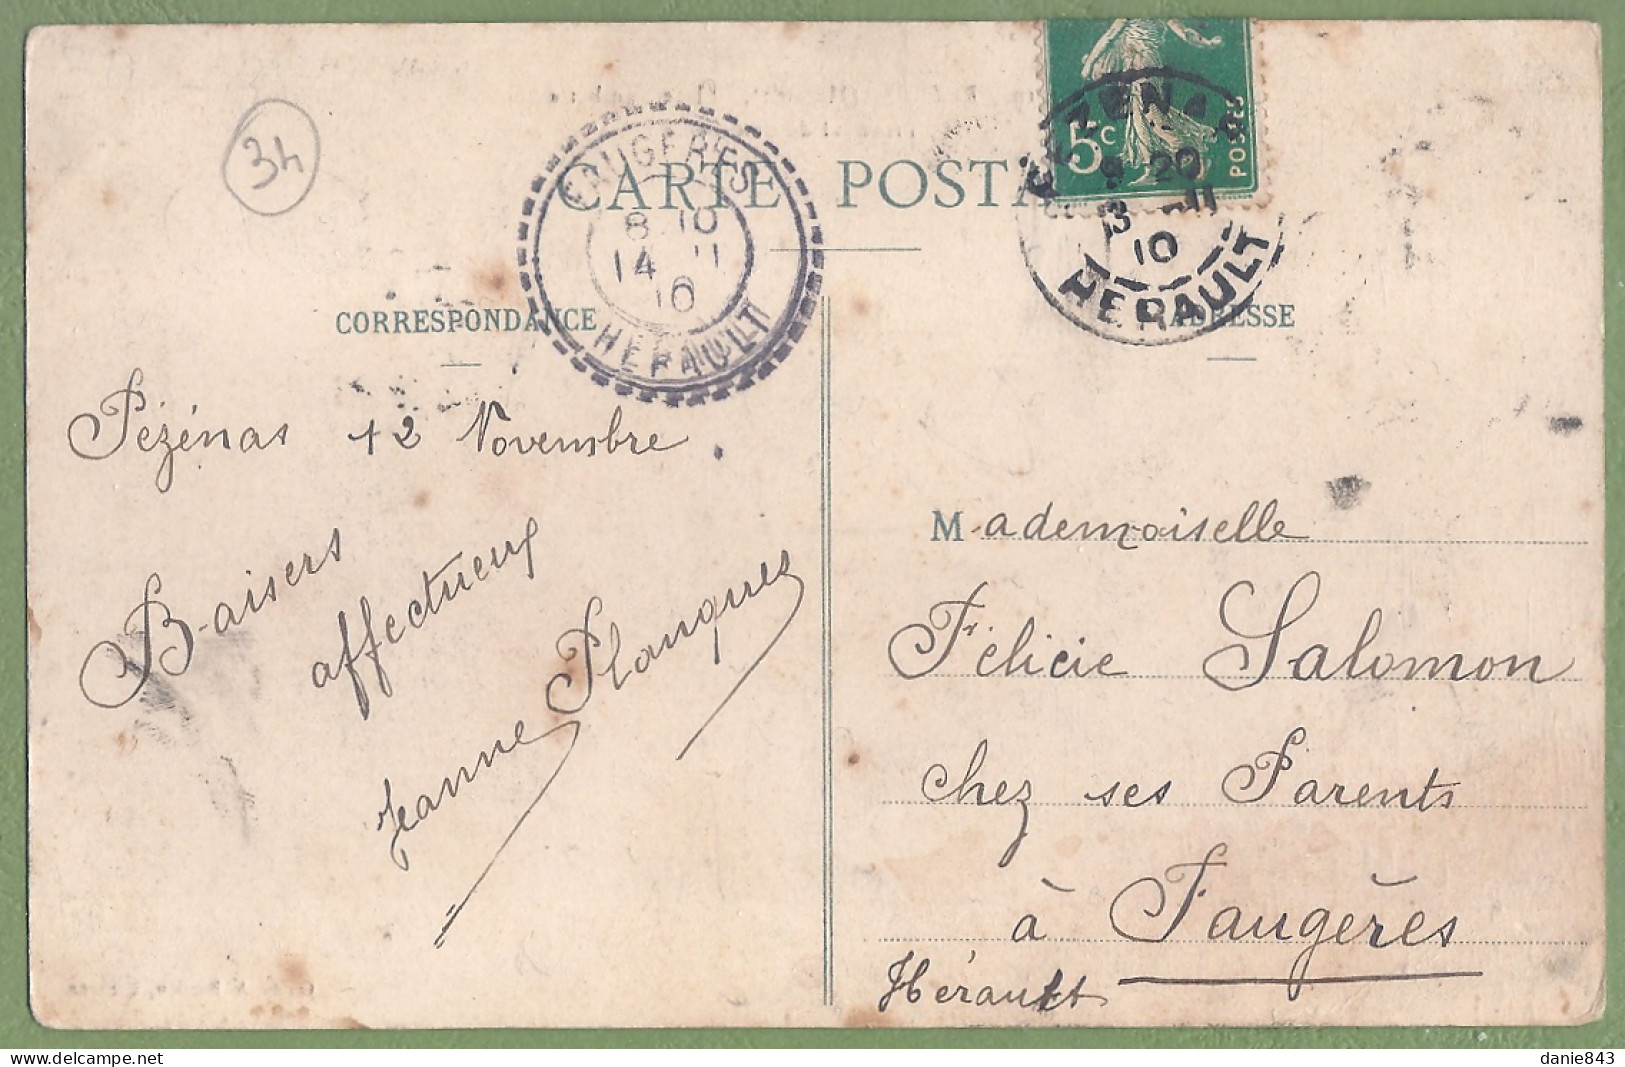 34
CARTE POSTA
5c
POSTES
PÉZENAS
9 20
13 -11
10
HERAULT
FAUGERES
8 10
14 11
10
HERAULT
CORRESPONDANCE
ADRESSE
Pézénas 12 Novembre
Baisers
affectueux
Jeanne Planques
Mademoiselle
Félicie Salomon
chez ses Parents
à Faugères
Hérault
danie843